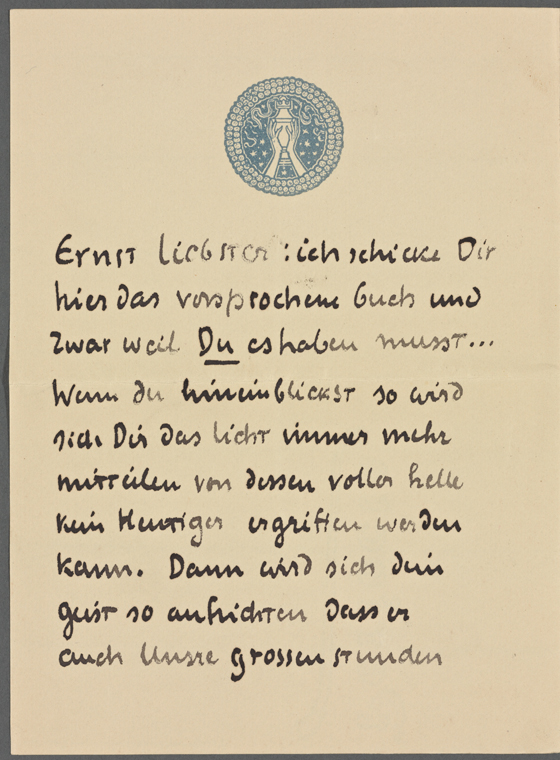 Ernst liebster : ich schicke Dir
hier das versprochene buch und
zwar weil Du es haben musst...
Wenn du hineinblickst so wird
sich Dir das licht immer mehr
mitteilen von dessen voller helle
kein Heutiger ergriffen werden
kann. Dann wird sich dein
geist so aufrichten dass er
auch Unsre grossen stunden